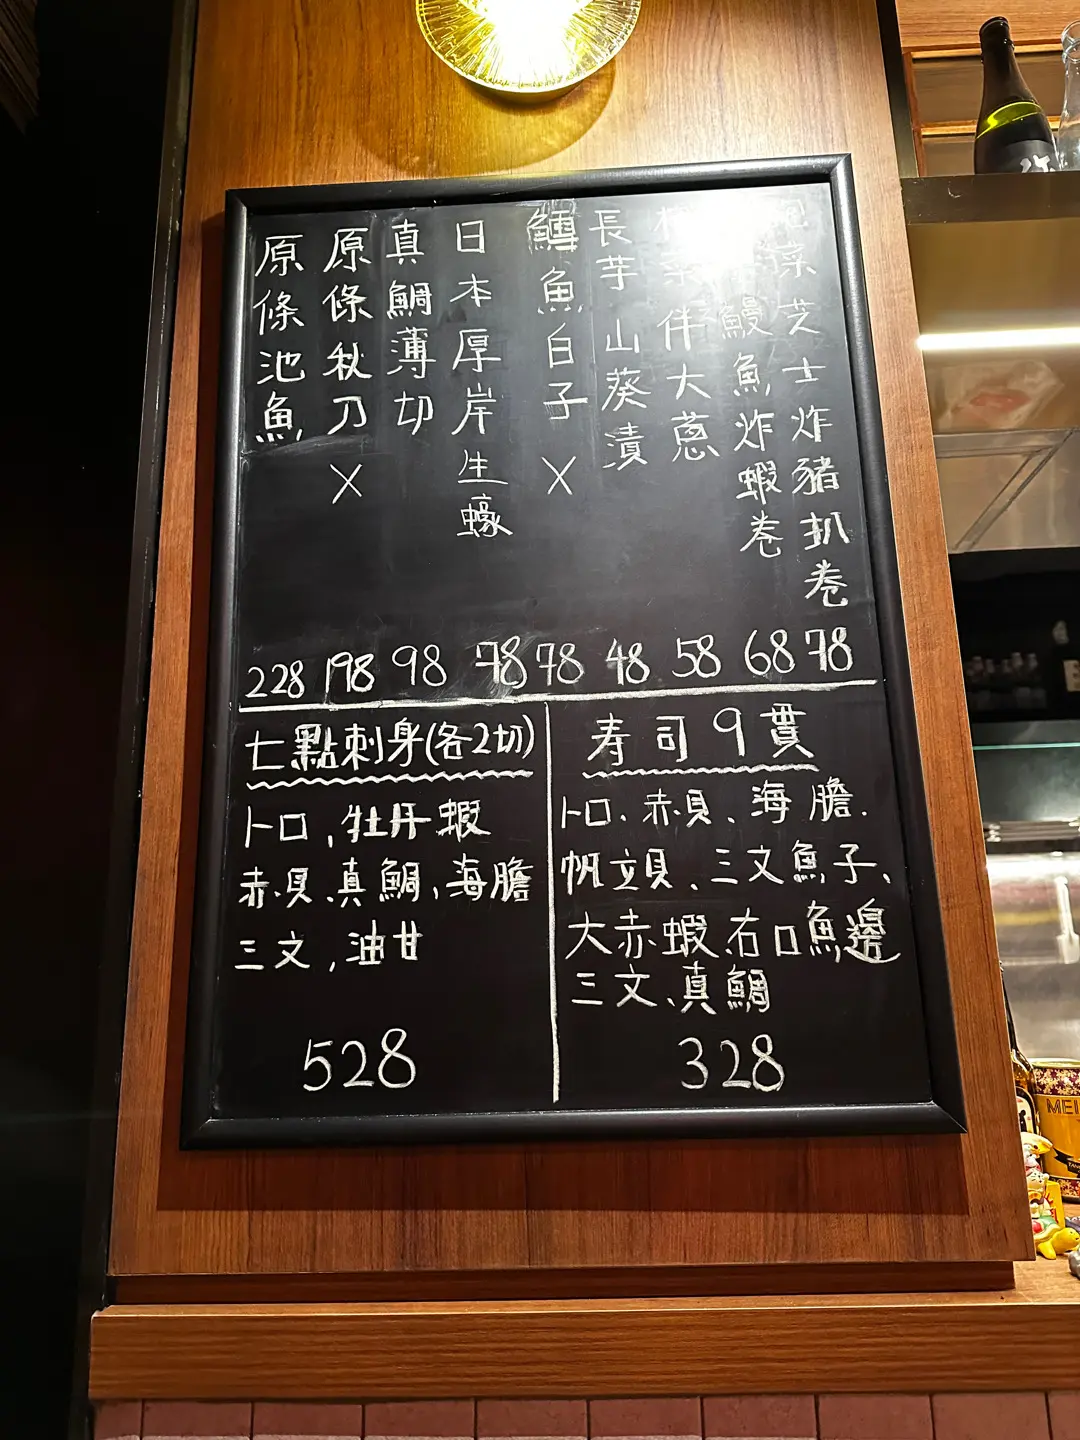 菠芝士炸豬扒卷 78
鰻魚炸蝦卷 68
菜伴大蔥 58
長芋山葵漬 48
鱈魚白子 X 78
日本厚岸生蠔 78
真鯛薄切 98
原條秋刀 X 198
原條池魚 228
七點刺身(各2切)
トロ,牡丹蝦
赤貝、真鯛、海膽
三文,油甘
528
寿司9貫
トロ、赤貝、海膽、
帆立貝、三文魚子、
大赤蝦、右口魚邊
三文、真鯛
328